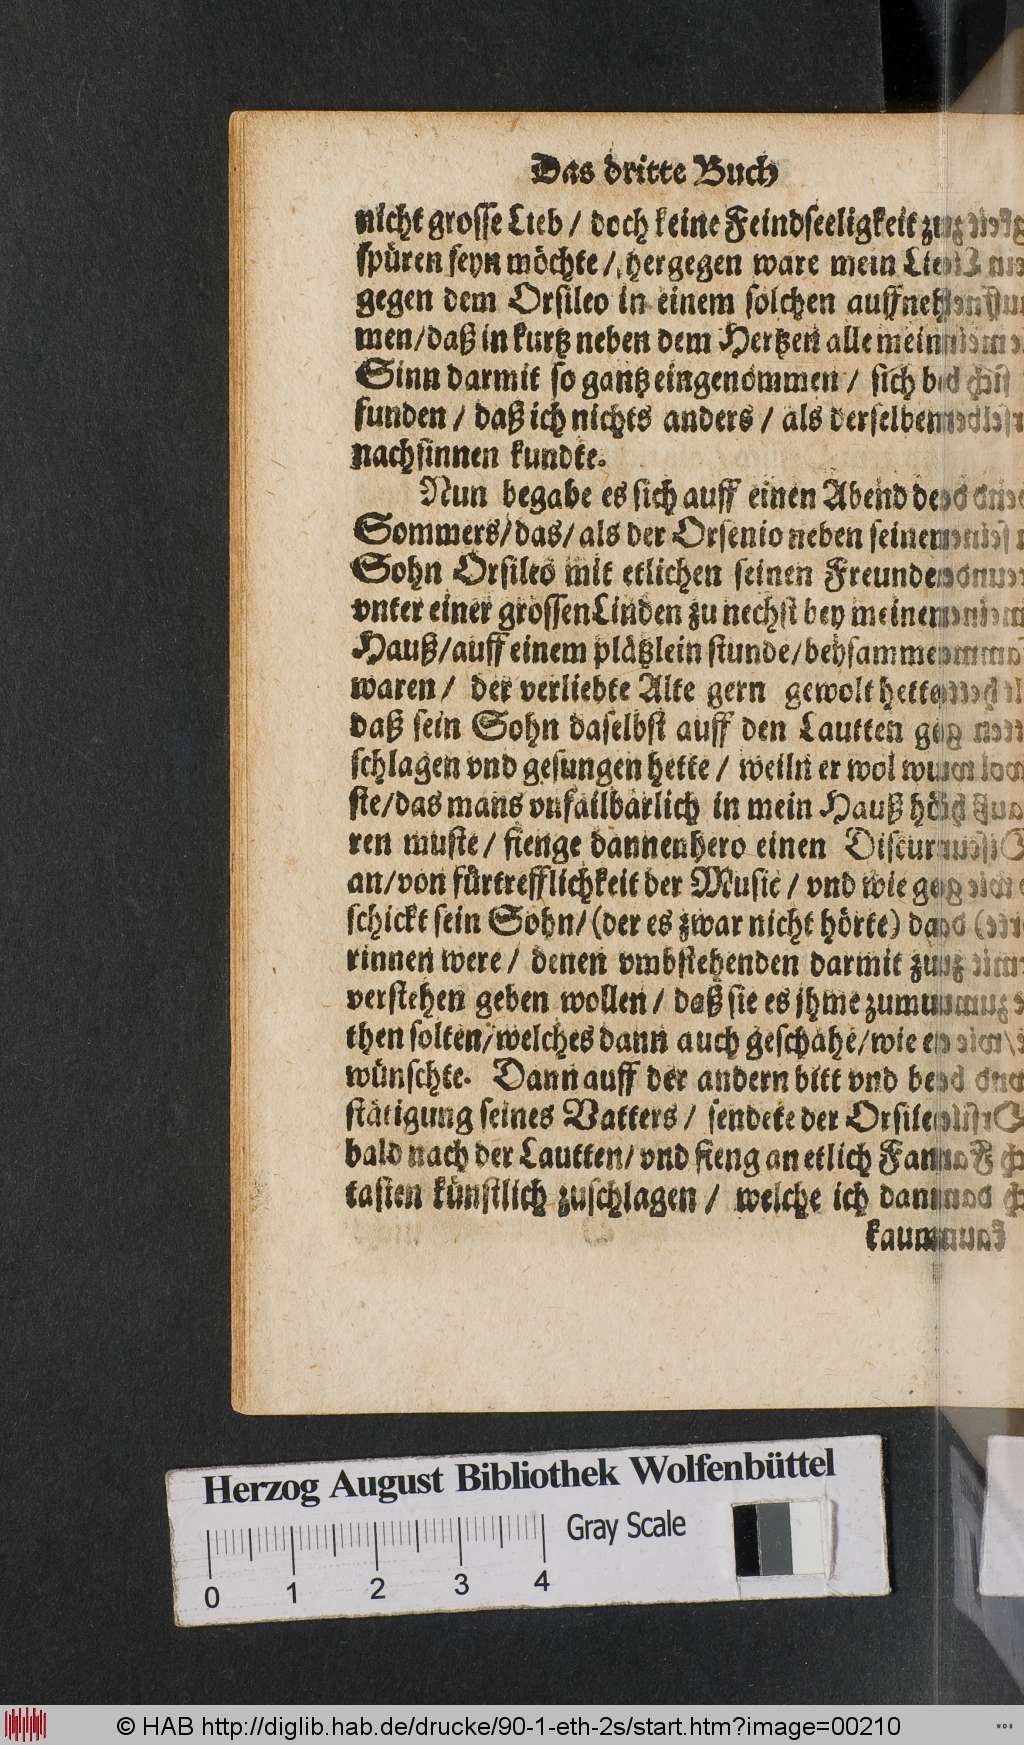 Das dritte Buch
nicht grosse Lieb / doch keine Feindseeligkeit zu
spüren seyn möchte / hergegen ware mein Lieb
gegen dem Orsileo in einem solchen auffneh-
men/daß in kurtz neben dem Hertzen alle mein
Sinn darmit so gantz eingenommen / sich be-
funden / daß ich nichts anders / als derselben
nachsinnen kundte.
Nun begabe es sich auff einen Abend deß
Sommers/das/als der Orsenio neben seinem
Sohn Orsileo mit etlichen seinen Freunden
vnter einer grossen Linden zu nechst bey meinem
Hauß/auff einem plätzlein stunde/beysammen
waren / der verliebte Alte gern gewolt hette
daß sein Sohn daselbst auff den Lautten ge-
schlagen vnd gesungen hette / weiln er wol wu-
ste/das mans vnfailbarlich in mein Hauß hö-
ren muste / fienge dannenhero einen Discur
an/von fürtrefflichkeit der Music / vnd wie ge-
schickt sein Sohn/(der es zwar nicht hörte) da-
rinnen were / denen vmbstehenden darmit zu
verstehen geben wollen / daß sie es jhme zumu-
then solten/welches dann auch geschahe/wie er
wünschte. Dann auff der andern bitt vnd be-
stätigung seines Vatters / sendete der Orsileo
bald nach der Lautten/vnd fieng an etlich Fan-
tasien künstlich zuschlagen / welche ich dann
kaum
Herzog August Bibliothek Wolfenbüttel
Gray Scale
0 1 2 3 4
© HAB http://diglib.hab.de/drucke/90-1-eth-2s/start.htm?image=00210